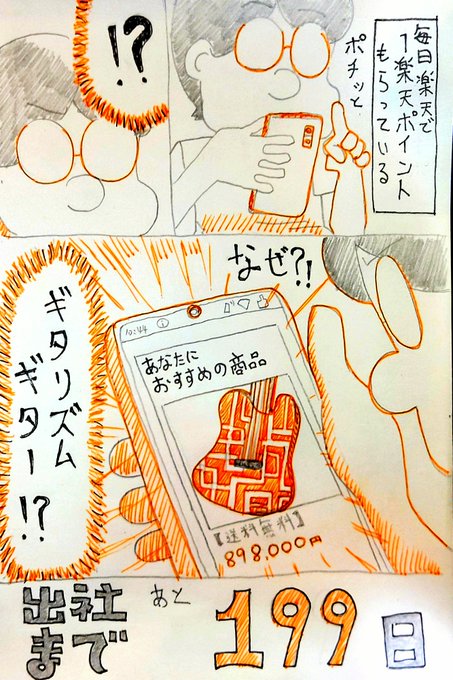 毎日楽天で
1楽天ポイント
もらっている
ポチッと
!?
なぜ?!
ギタリズム
ギター!?
10:44
あなたに
おすすめの商品
【送料無料】
898,000円
出社
まで
あと
199日